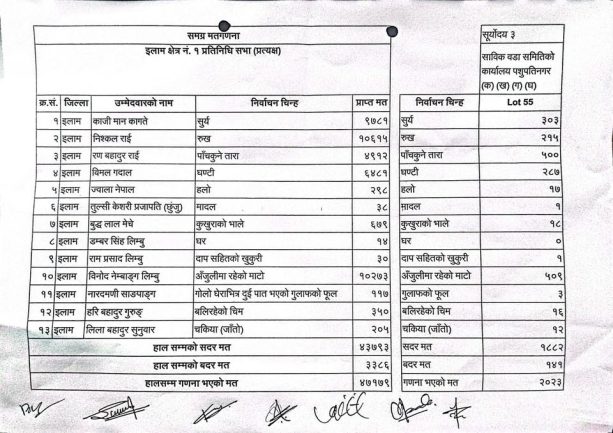 समग्र मतगणना
इलाम क्षेत्र नं. १ प्रतिनिधि सभा (प्रत्यक्ष)
सूर्योदय ३
साविक वडा समितिको
कार्यालय पशुपतिनगर
(क) (ख) (ग) (घ)
क्र.सं. जिल्ला उम्मेदवारको नाम निर्वाचन चिन्ह प्राप्त मत निर्वाचन चिन्ह Lot 55
१ इलाम काजी मान कागते सुर्य ९७८१ सुर्य ३०३
२ इलाम निश्कल राई रुख १०६१५ रुख २१५
३ इलाम रण बहादुर राई पाँचकुने तारा ४९१२ पाँचकुने तारा ५००
४ इलाम विमल गदाल घण्टी ६४८१ घण्टी २८७
५ इलाम ज्वाला नेपाल हलो २९८ हलो १७
६ इलाम तुल्सी केशरी प्रजापति (छुंजु) मादल ३८ मादल १
७ इलाम बुद्ध लाल मेचे कुखुराको भाले ६७९ कुखुराको भाले १८
८ इलाम डम्बर सिंह लिम्बु घर १४ घर ०
९ इलाम राम प्रसाद लिम्बु दाप सहितको खुकुरी ३० दाप सहितको खुकुरी १
१० इलाम विनोद नेम्बाङ्ग लिम्बु अँजुलीमा रहेको माटो १०२७३ अँजुलीमा रहेको माटो ५०९
११ इलाम नारदमणी साडपाङ्ग गोलो घेराभित्र दुई पात भएको गुलाफको फूल ११७ गुलाफको फूल ३
१२ इलाम हरि बहादुर गुरुङ्ग बलिरहेको चिम ३५० बलिरहेको चिम १६
१३ इलाम लिला बहादुर सुनुवार चकिया (जाँतो) २०५ चकिया (जाँतो) १२
हाल सम्मको सदर मत ४३७९३ सदर मत १८८२
हाल सम्मको बदर मत ३३८६ बदर मत १४१
हालसम्म गणना भएको मत ४७१७९ गणना भएको मत २०२३